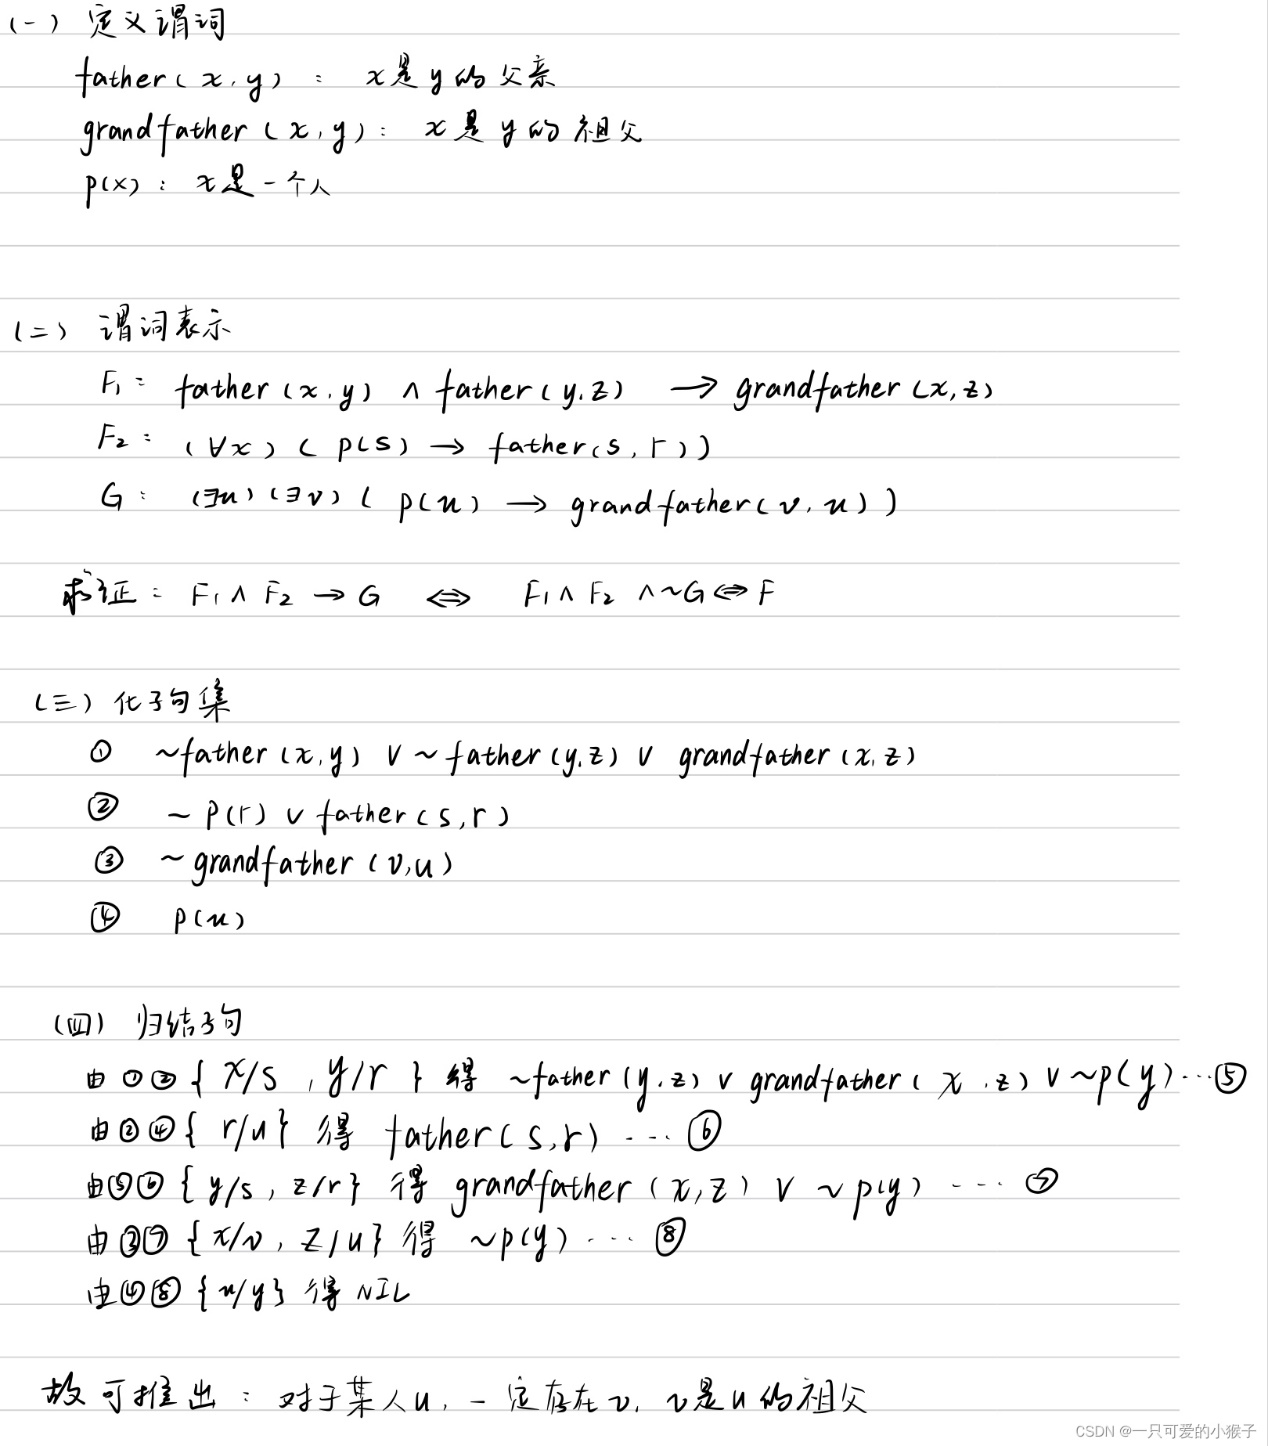 (一) 定义谓词
father(x,y) : x是y的父亲
grandfather(x,y): x是y的祖父
p(x): x是一个人
(二) 谓词表示
F₁: father(x,y) ∧ father(y,z) → grandfather(x,z)
F₂: (∀x)( p(s) → father(s,r))
G: (∃u)(∃v)( p(u) → grandfather(v,u))
求证: F₁∧F₂→G ⇔ F₁∧F₂∧~G⇔F
(三) 化子句集
① ~father(x,y) ∨ ~father(y,z) ∨ grandfather(x,z)
② ~p(r) ∨ father(s,r)
③ ~grandfather(v,u)
④ p(u)
(四) 归结子句
由①②{x/s,y/r}得 ~father(y,z) ∨ grandfather(x,z) ∨ ~p(y)…⑤
由②④{r/u}得 father(s,r)…⑥
由⑤⑥{y/s,z/r}得 grandfather(x,z) ∨ ~p(y)…⑦
由③⑦{x/v,z/u}得 ~p(y)…⑧
由④⑧{u/y}得NIL
故可推出:对于某人u,一定存在v,v是u的祖父
CSDN @一只可爱的小猴子